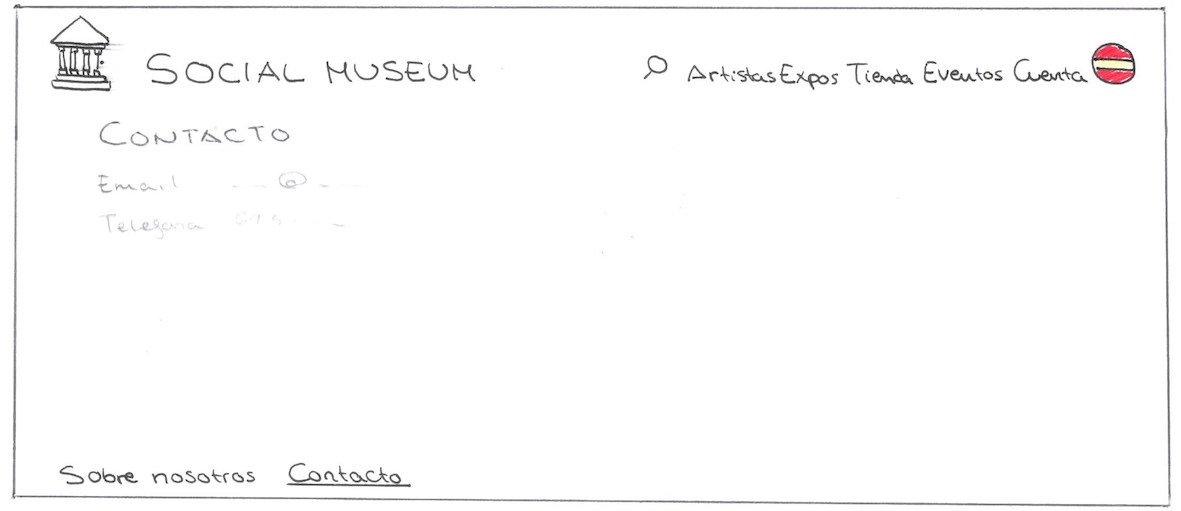 SOCIAL MUSEUM
Artistas Expos Tienda Eventos Cuenta
CONTACTO
Email @
Sobre nosotros Contacto